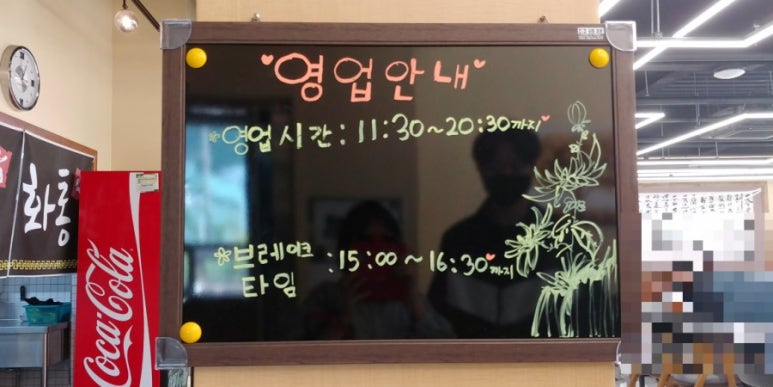 ♥영업안내♥
영업시간 : 11:30~20:30까지
브레이크 : 15:00~16:30까지
타임
화통
Coca-Cola